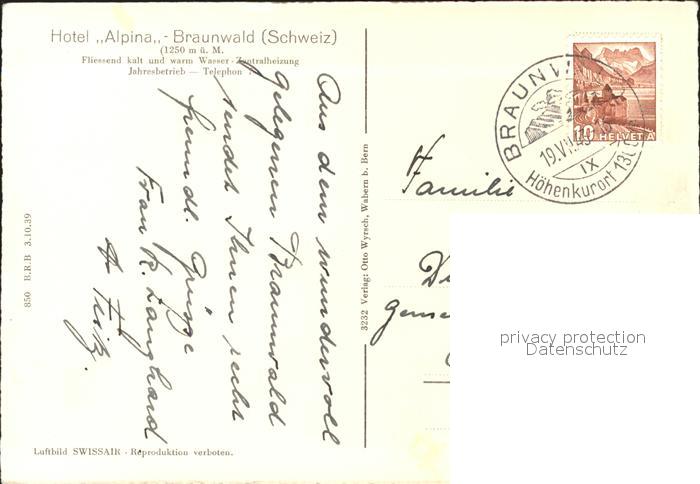 Hotel „Alpina„ - Braunwald (Schweiz)
(1250 m ü. M.
Fliessend kalt und warm Wasser - Zentralheizung
Jahresbetrieb — Telephon
Aus dem wundervoll
gelegenen Braunwald
sendet Ihnen recht
freundl. Grüsse
Frau R. Langhard
Fritz.
850 B.R.B 3.10.39
Luftbild SWISSAIR - Reproduktion verboten.
3232 Verlag: Otto Wyrsch, Wabern b. Bern
BRAUNW
19.VII.
IX
Höhenkurort
10 HELVETIA
Familie
privacy protection
Datenschutz